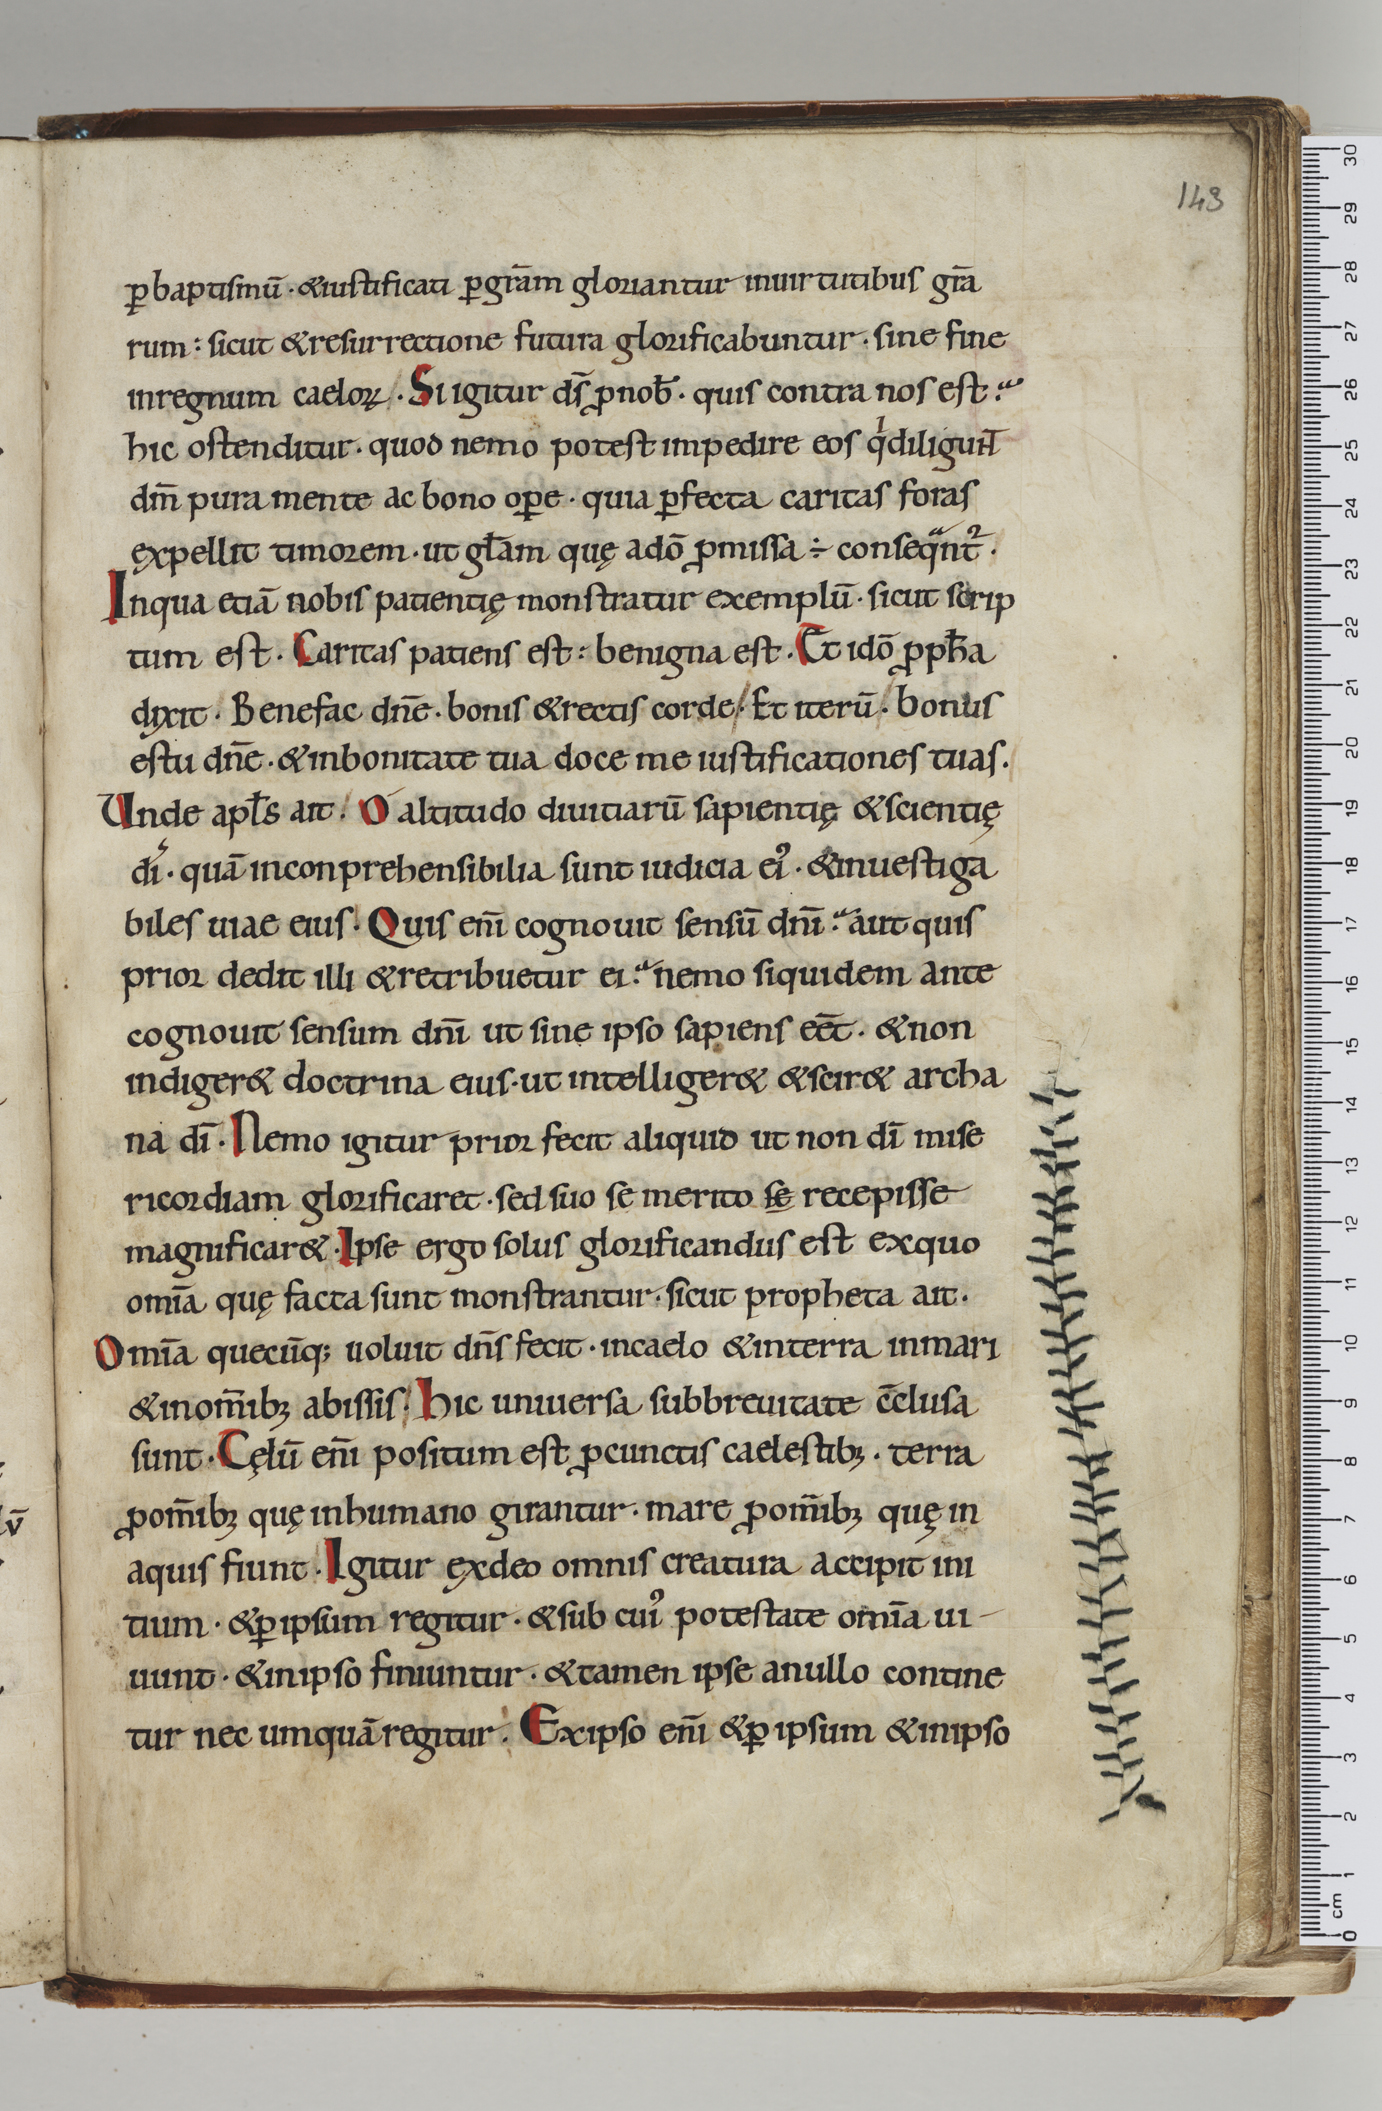 143
ꝑbaptismū · &iustificati ꝑgr̄am gloriantur inuirtutibus gr̄a
rum : sicut &resurrectione futura glorificabuntur · sine fine
inregnum caeloꝝ · Si igitur ds̄ ꝓnob̄ · quis contra nos est ?
hic ostenditur · quod nemo potest impedire eos qͥdiligunt̄
dm̄ pura mente ac bono oꝑe · quia ꝑfecta caritas foras
expellit timorem · ut gl̄am quę adō ꝓmissa ÷ conseqᷓnt᷑ ·
Inqua etiā nobis patientię monstratur exemplū · sicut scrip
tum est · Caritas patiens est : benigna est · Et idō ꝓph̄a
dixit · Benefac dn̄e · bonis &rectis corde · Et iterū · bonus
estu dn̄e · &inbonitate tua doce me iustificationes tuas ·
Unde apl̄s ait · O altitudo diuitiarū sapientię &scientię
dī · quā inconprehensibilia sunt iudicia eiꝰ · &inuestiga
biles uiae eius · Quis eni̅ cognouit sensū dni̅ ? aut quis
prior dedit illi &retribuetur ei ? nemo siquidem ante
cognouit sensum dni̅ ut sine ipso sapiens eēt · &non
indiger& doctrina eius · ut intelliger& &scir& archa
na dī · Nemo igitur prior fecit aliquid ut non dī mise
ricordiam glorificaret · sed suo se merito se recepisse
magnificar& · Ipse ergo solus glorificandus est exquo
omi̅a quę facta sunt monstrantur · sicut propheta ait ·
Omi̅a quecūq; uoluit dn̄s fecit · incaelo &interra inmari
&inom̄ibꝫ abissis · hic uniuersa subbreuitate c̄clusa
sunt · Cęlū eni̅ positum est ꝓcunctis caelestibꝫ · terra
ꝓom̄ibꝫ quę inhumano girantur · mare ꝓom̄ibꝫ quę in
aquis fiunt · Igitur exdeo omnis creatura accipit ini
tium · &ꝑipsum regitur · &sub cuiꝰ potestate omi̅a ui-
uunt · &inipso finiuntur · &tamen ipse anullo contine
tur nec umquā regitur · Exipso eni̅ &ꝑ ipsum &inipso
v̄
30
29
28
27
26
25
24
23
22
21
20
19
18
17
16
15
14
13
12
11
10
9
8
7
6
5
4
3
2
1
cm
0